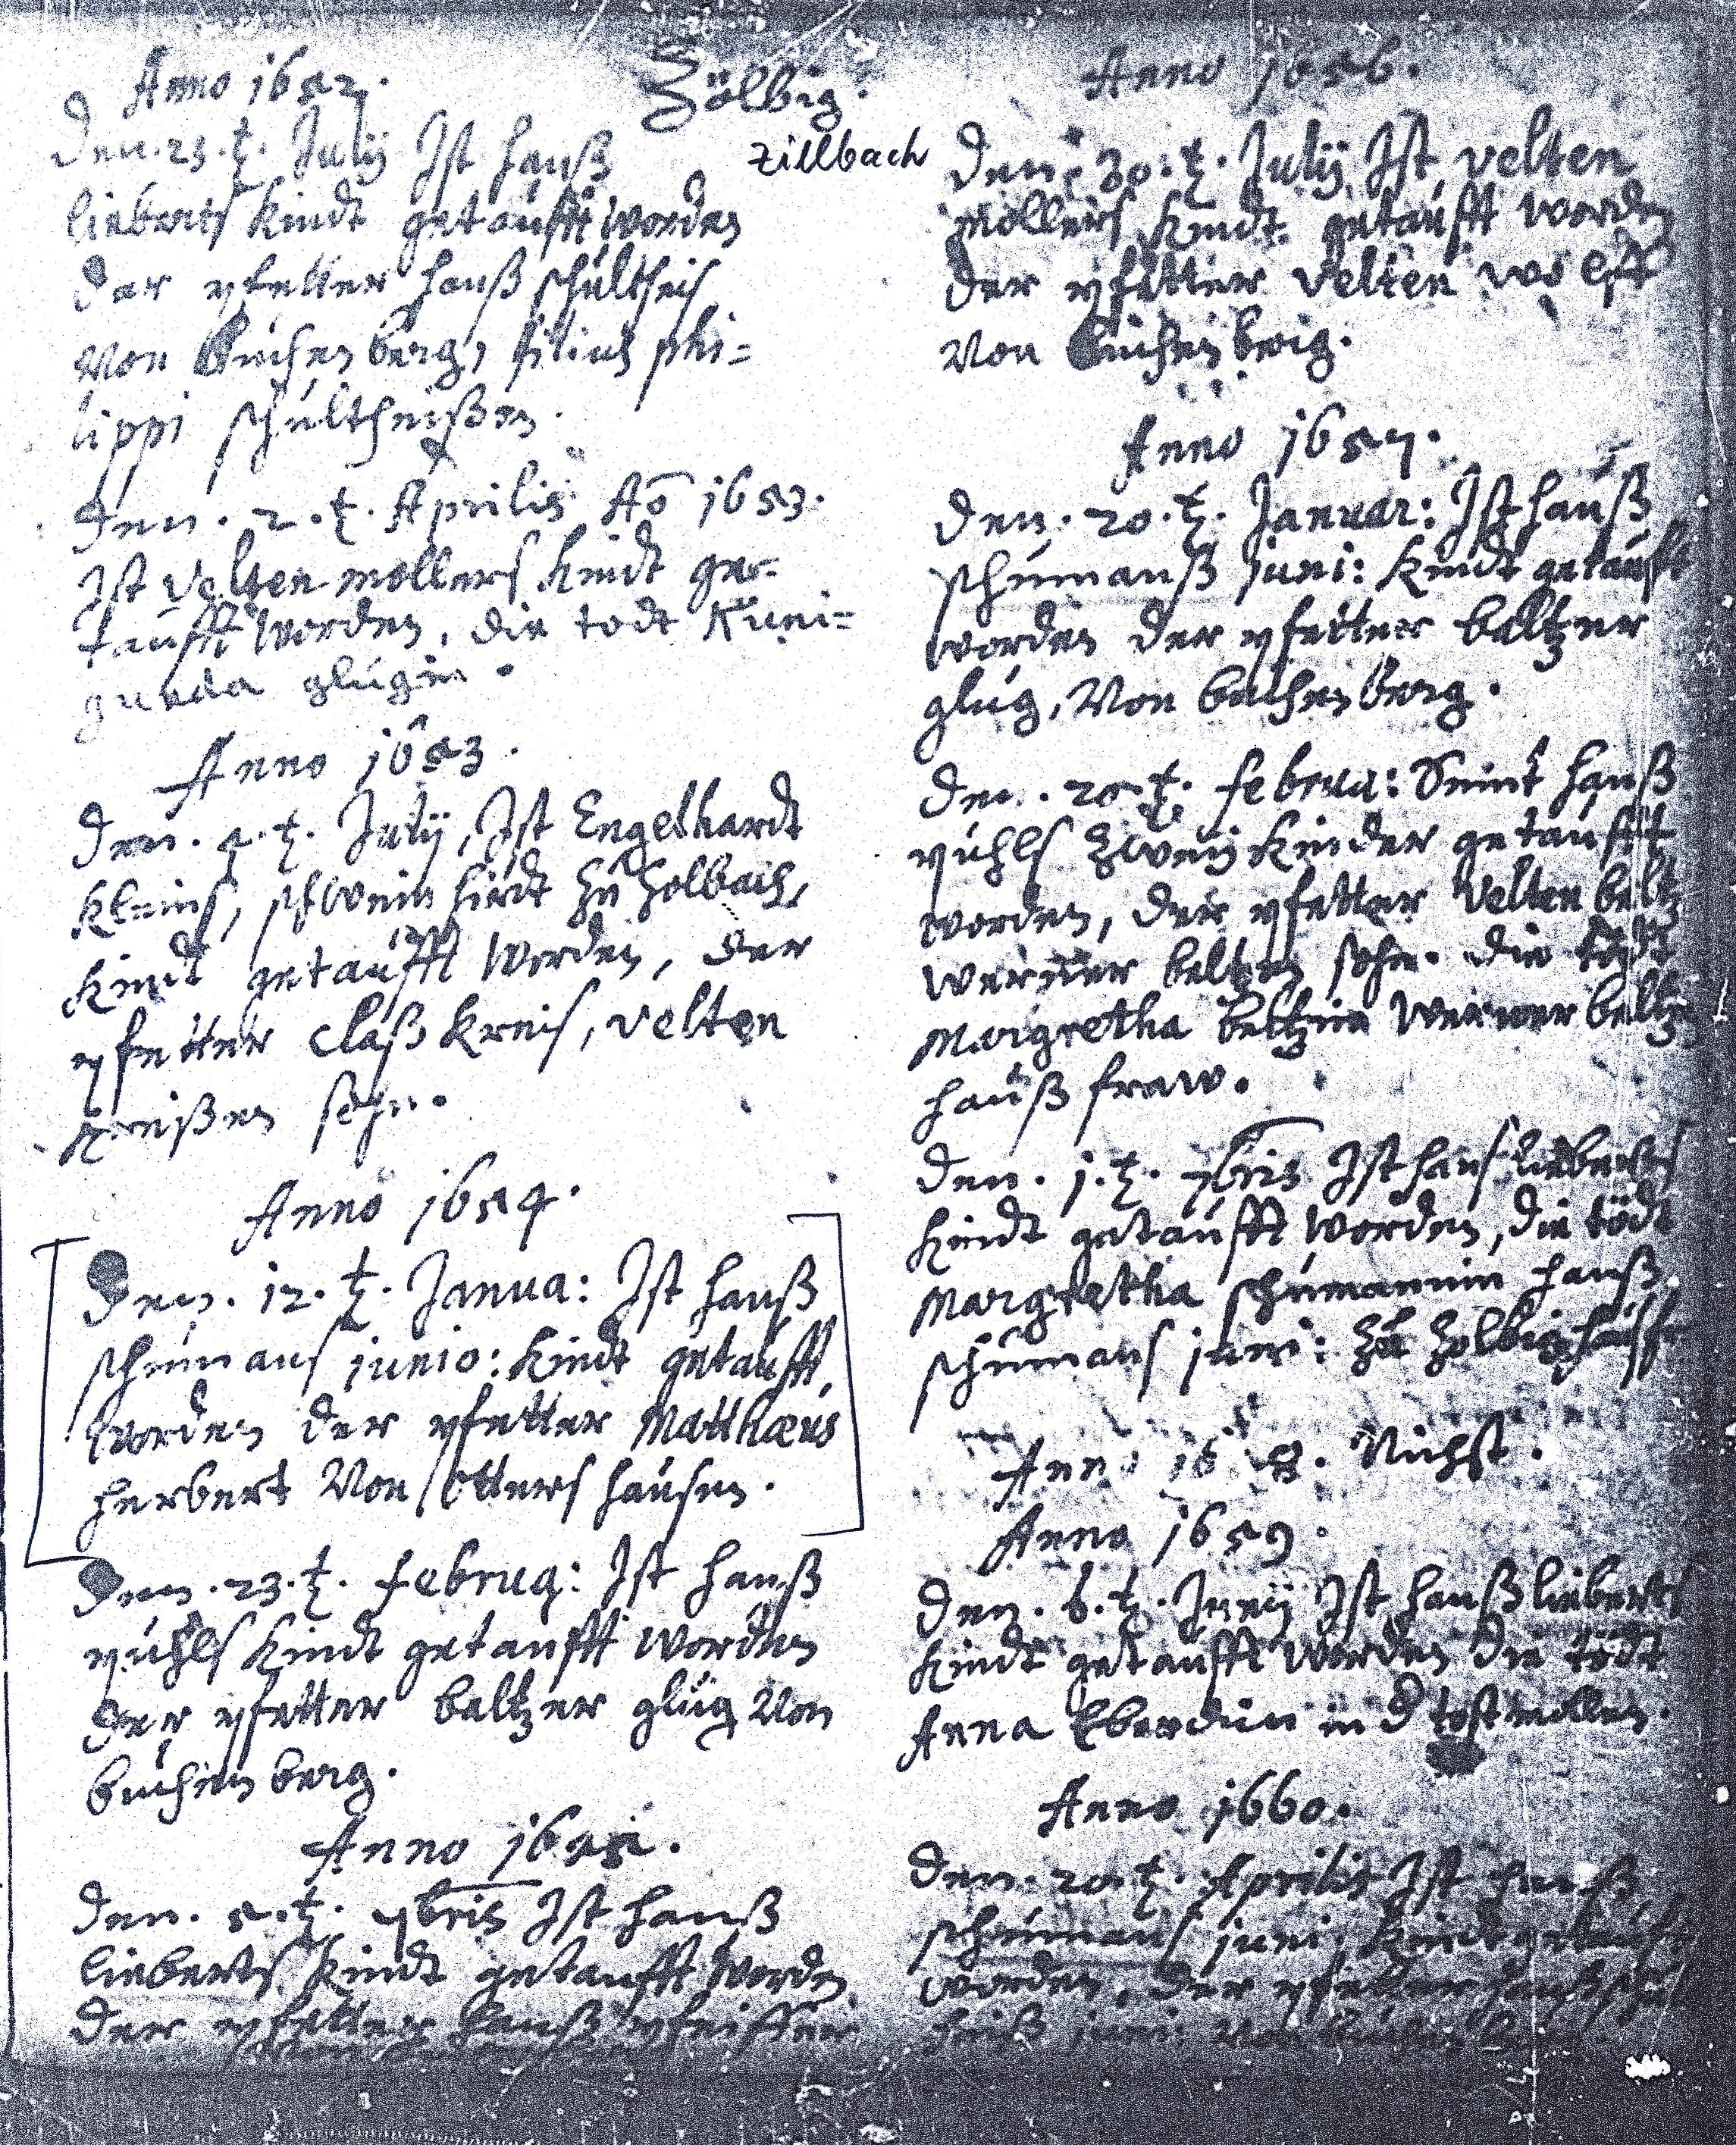 Anno 1652.
Zölbig.
Zillbach
Den. 23. t. Julij Ist Hanß
lieberts Kindt getaufft worden
der pfetter Hanß schultheis
von Buchenberg, filius phi=
lippi schultheißen.
Den. 2. t. Aprilis Aō 1653.
Ist Velten mollers Kindt ge=
taufft worden, die todt Kuni=
gunda glugin.
Anno 1653.
Den. 4. t. Julij, Ist Engelhardt
Kleins, schweinhirdt zu Zolbach,
Kindt getaufft worden, der
pfetter Claß Kreis, Velten
Kreißen sohn.
Anno 1654.
Den. 12. t. Janua: Ist Hanß
schumans junio: Kindt getaufft,
worden der pfetter Matthæus
herbert von Ottershausen.
Den. 23. t. Februa: Ist Hanß
rühls Kindt getaufft worden
der pfetter baltzer glug von
buchenberg.
Anno 1655.
Den. 5. t. 7bris Ist Hanß
lieberts Kindt getaufft worden
der pfetter Hanß pfeiffer
Anno 1656.
Den. 30. t. Julij Ist Velten
mollers Kindt getaufft worden
der pfetter Velten
von Buchenberg.
Anno 1657.
Den. 20. t. Januar: Ist Hanß
schumanß juni: Kindt getaufft
worden der pfetter baltzer
glug, von buchenberg.
Den. 20. t. Februa: Seint Hanß
rühls zwey Kinder getaufft
worden, der pfetter Velten beltz
werner beltzen sohn. die todt
Margretha beltzin werner beltzen
hauß fraw.
Den. 1. t. 7bris Ist Hans lieberts
Kindt getaufft worden, die tödt
Margretha schumannin Hanß
schumans juni: zu Zolbig
Anno 1658. Nichst.
Anno 1659.
Den. 6. t. Junij Ist Hanß lieberts
Kindt getaufft worden die tödt
Anna Eberdin in d
Anno 1660.
Den. 20. t. Aprilis Ist Hanß
schumans juni: Kindt getaufft
worden, der pfetter
juni: von